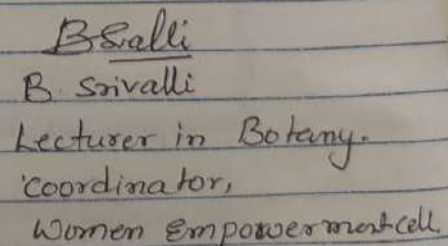 B Srivalli
B. Srivalli
Lecturer in Botany.
Coordinator,
Women Empowerment cell